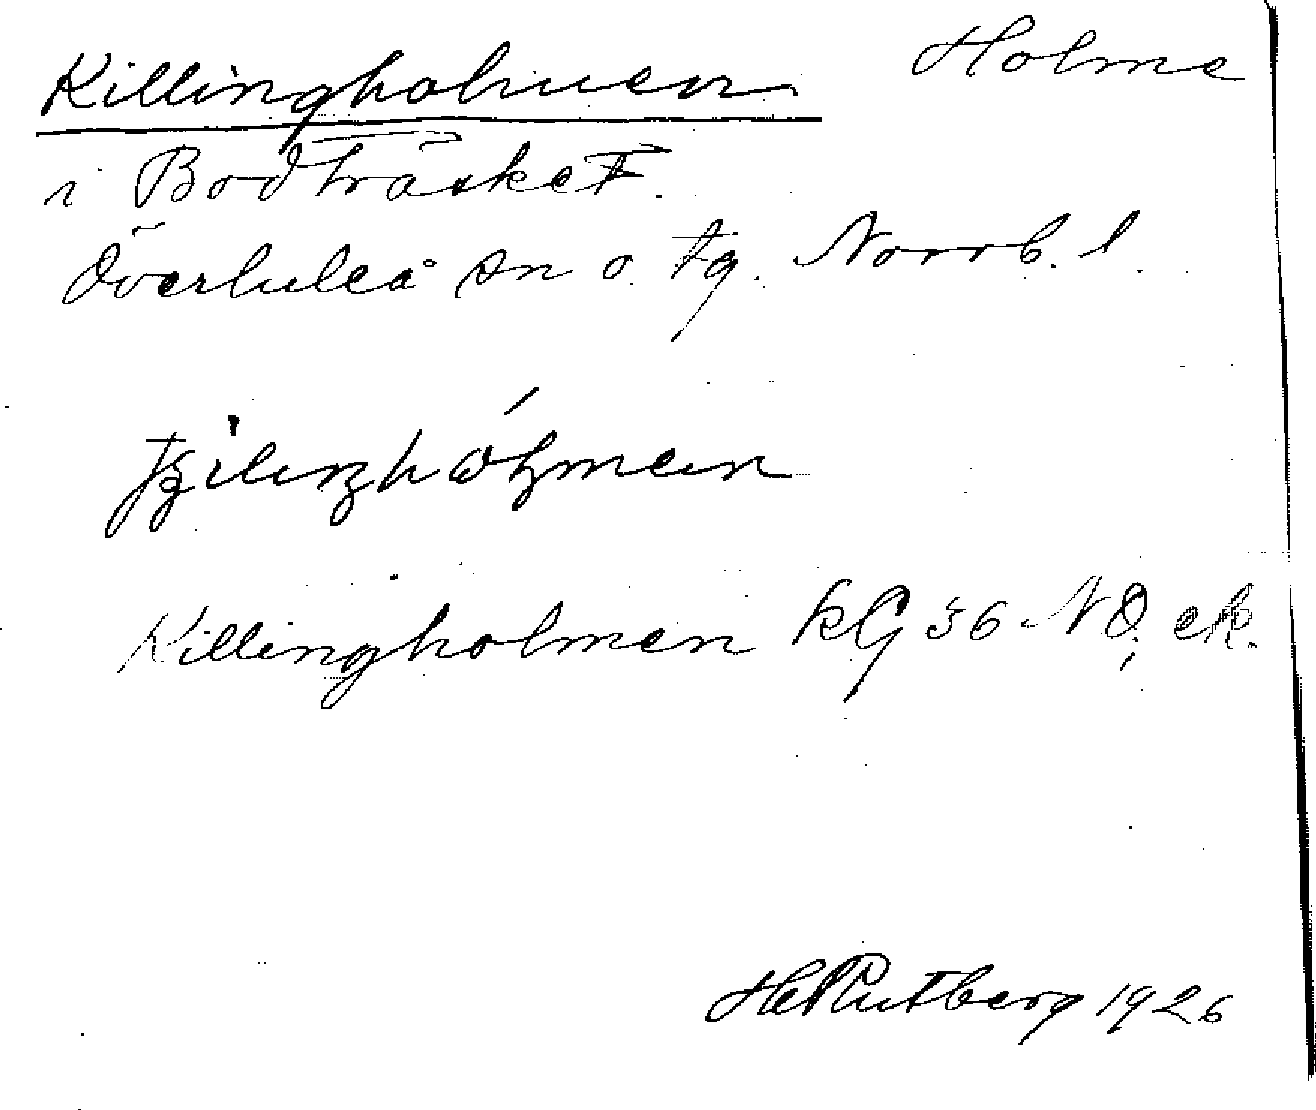 Killingholmen Holme
i Bodträsket.
Överluleå sn o. tg. Norrb. l.
Killingholmen kG 36 NO, ek.
Hel Rutberg 1926